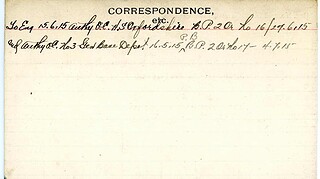 CORRESPONDENCE,
etc.
To Eng 15.6.15 authy O.C. H.S Oxfordshire B.P. 2 Or No 16/17.6.15
authy O.C. No 3 Gen Base Depot 16.5.15 P.B B.P. 2 Or No 17 - 4.7.15